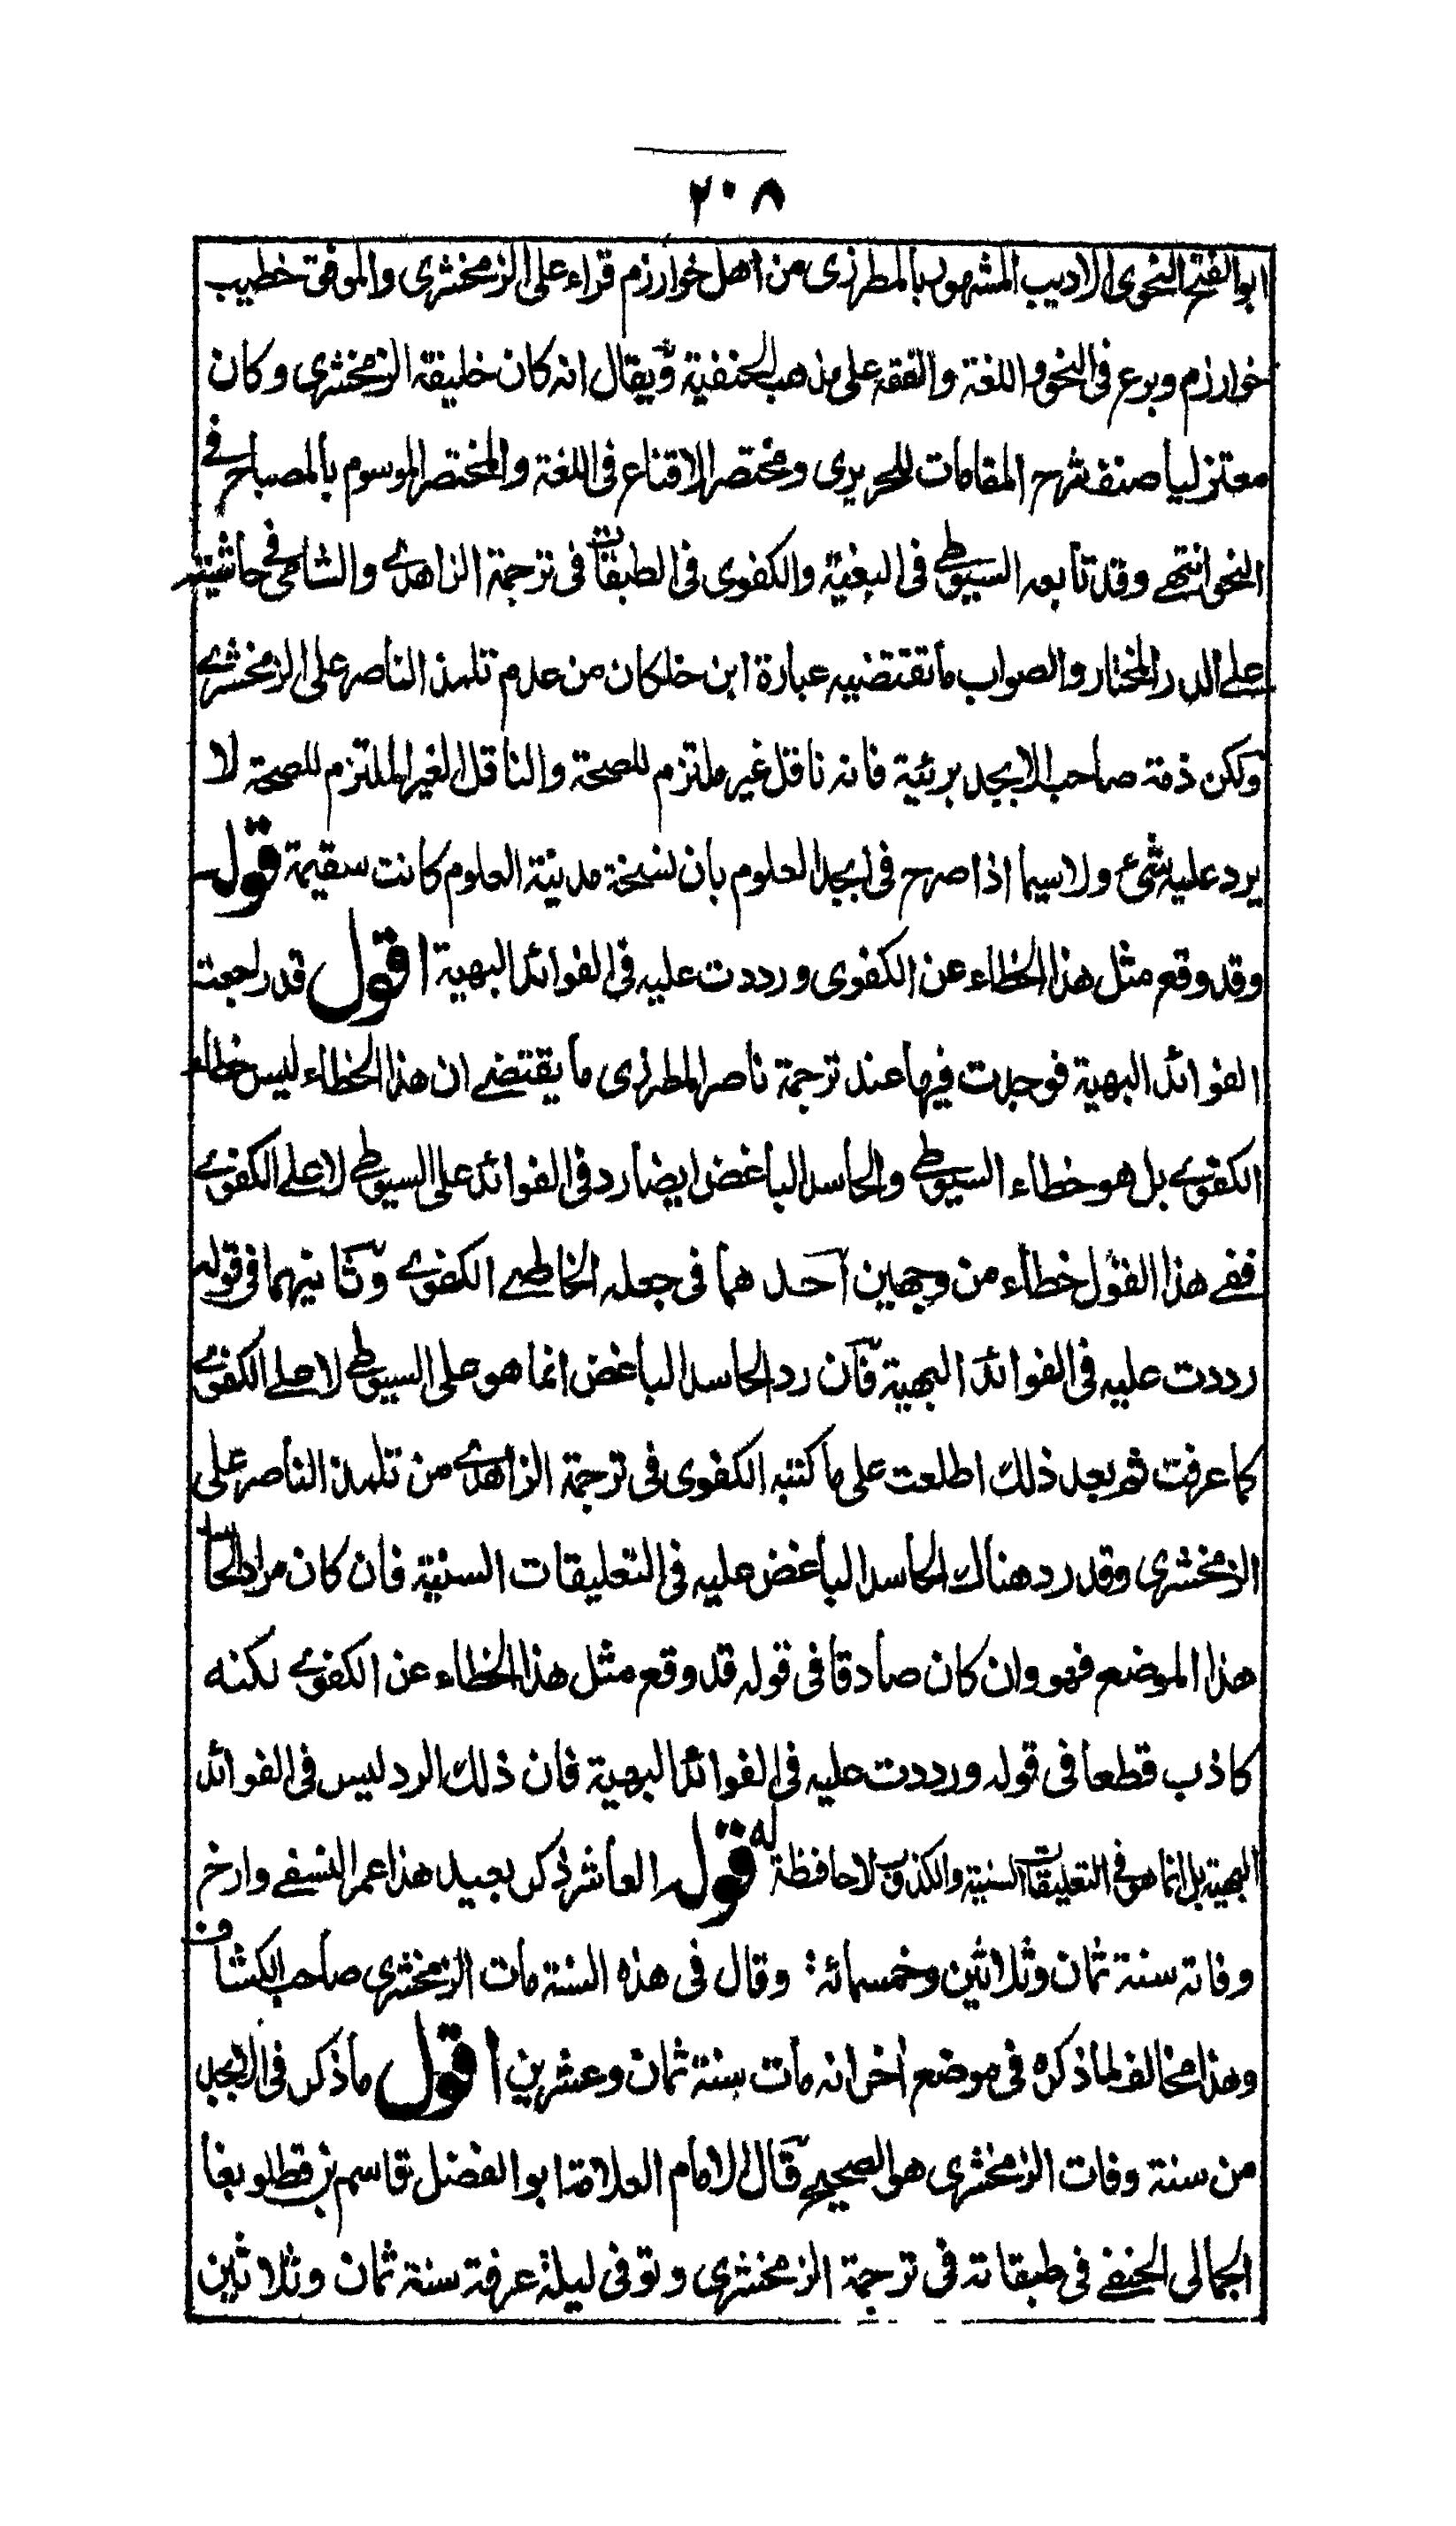 ٢٠٨
ابو الفتح النحوى الاديب المشهور بالمطرزى من اهل خوارزم قراء على الزمخشرى والموفق خطيب
خوارزم وبرع فى النحو واللغة والفقه على مذهب الحنفية ويقال انه كان خليفة الزمخشرى وكان
معتزليا صنف شرح المقامات للحريرى ومختصر الاقناع فى اللغة والمختصر الموسوم بالمصباح فى
النحو انتهى وقد تابعه السيوطى فى البغية والكفوى فى الطبقات فى ترجمة الزاهدى والشامى فى حاشيته
على الدر المختار والصواب ما تقتضيه عبارة ابن خلكان من عدم تلمذ الناصر على الزمخشرى
ولكن ذمة صاحب الابجد بريئة فانه ناقل غير ملتزم للصحة والناقل الغير الملتزم للصحة لا
يرد عليه شئ ولاسيما اذا صرح فى ابجد العلوم بان نسخة مدينة العلوم كانت سقيمة قوله
وقد وقع مثل هذا الخطاء عن الكفوى ورددت عليه فى الفوائد البهية اقول قد راجعت
الفوائد البهية فوجدت فيها عند ترجمة ناصر المطرزى ما يقتضى ان هذا الخطاء ليس خطاء
الكفوى بل هو خطاء السيوطى والحاسد الباغض ايضا رد فى الفوائد على السيوطى لا على الكفوى
ففى هذا القول خطاء من وجهين احدهما فى جعله الخاطى الكفوى وثانيهما فى قوله
رددت عليه فى الفوائد البهية فان رد الحاسد الباغض انما هو على السيوطى لا على الكفوى
كما عرفت ثم بعد ذلك اطلعت على ما كتبه الكفوى فى ترجمة الزاهدى من تلمذ الناصر على
الزمخشرى وقد رد هناك الحاسد الباغض عليه فى التعليقات السنية فان كان مراد الحاسد
هذا الموضع فهو وان كان صادقا فى قوله قد وقع مثل هذا الخطاء عن الكفوى لكنه
كاذب قطعا فى قوله ورددت عليه فى الفوائد البهية فان ذلك الرد ليس فى الفوائد
البهية بل انما هو فى التعليقات السنية والكذوب لا حافظة له قوله العاشر ذكر بعيد هذا عمر النسفى وارخ
وفاته سنة ثمان وثلاثين وخمسمائة: وقال فى هذه السنة مات الزمخشرى صاحب الكشاف
وهذا مخالف لما ذكره فى موضع اخر انه مات سنة ثمان وعشرين اقول ما ذكر فى الابجد
من سنة وفات الزمخشرى هو الصحيح قال الامام العلامة ابو الفضل قاسم بن قطلوبغا
الجمالى الحنفى فى طبقاته فى ترجمة الزمخشرى وتوفى ليلة عرفة سنة ثمان وثلاثين